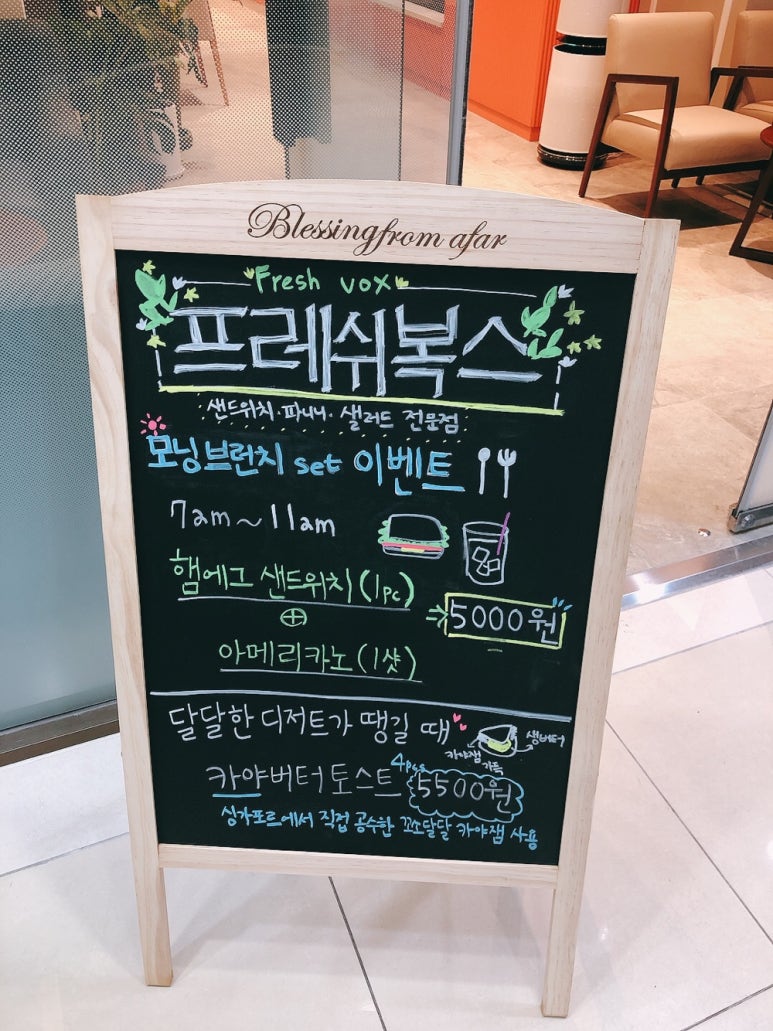 Blessing from afar
Fresh vox
프레쉬복스
샌드위치·파니니·샐러드 전문점
모닝브런치 set 이벤트
7am~11am
햄에그 샌드위치(1pc)
⊕
아메리카노(1샷)
⇒ 5000원
달달한 디저트가 땡길 때
카야잼 가득
생버터
카야버터토스트 4pcs 5500원
싱가포르에서 직접 공수한 꼬소달달 카야잼 사용